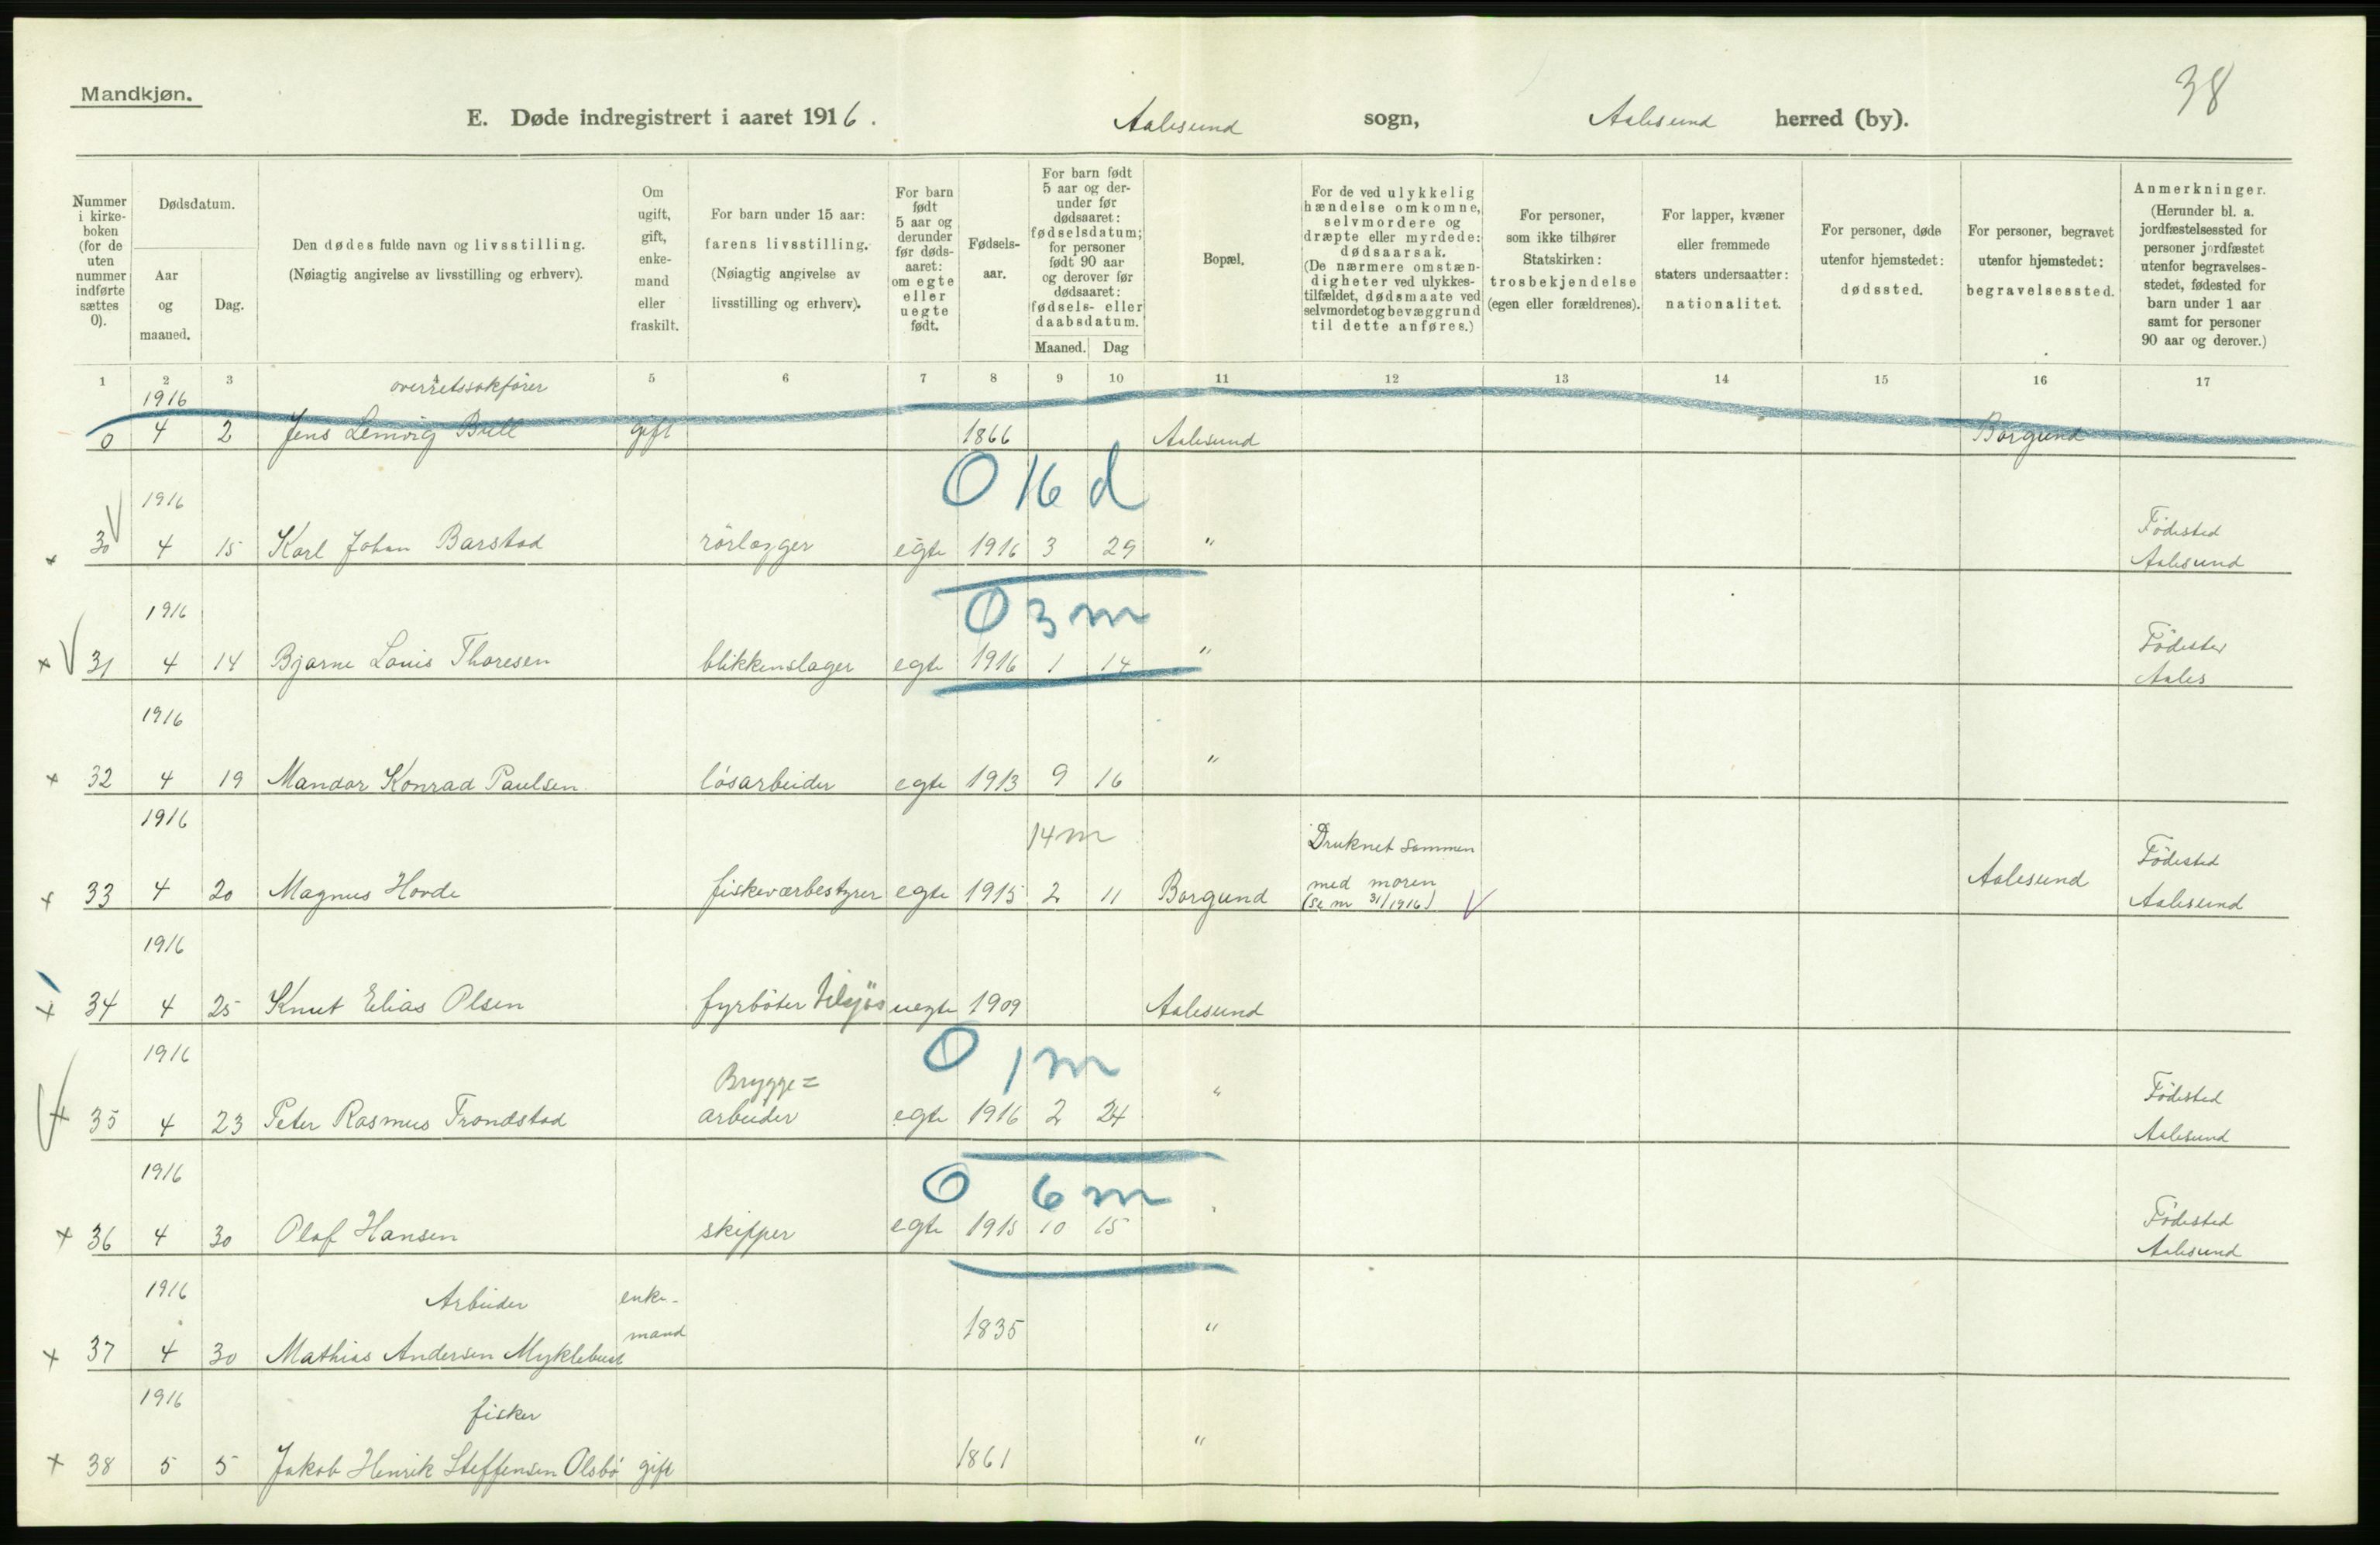 Mandkjøn.
38
E. Døde indregistrert i aaret 1916. Aalesund sogn, Aalesund herred (by).
Nummer i kirke-boken (for de uten nummer indførte sættes 0).
Dødsdatum.
Aar og maaned.
Dag.
Den dødes fulde navn og livsstilling.
(Nøiagtig angivelse av livsstilling og erhverv).
Om ugift, gift, enke-mand eller fraskilt.
For barn under 15 aar: farens livsstilling. (Nøiagtig angivelse av livsstilling og erhverv).
For barn født 5 aar og derunder før døds-aaret: om egte eller uegte født.
Fødsels-aar.
For barn født 5 aar og der-under før dødsaaret: fødselsdatum; for personer født 90 aar og derover før dødsaaret: fødsels- eller daabsdatum.
Maaned. Dag
Bopæl.
For de ved ulykkelig hændelse omkomne, selvmordere og dræpte eller myrdede: dødsaarsak. (De nærmere omstæn-digheter ved ulykkes-tilfældet, dødsmaate ved selvmordet og bevæggrund til dette anføres.)
For personer, som ikke tilhører Statskirken: trosbekjendelse (egen eller forældrenes).
For lapper, kvæner eller fremmede staters undersaatter: nationalitet.
For personer, døde utenfor hjemstedet: dødssted.
For personer, begravet utenfor hjemstedet: begravelsessted.
Anmerkninger. (Herunder bl. a. jordfæstelsessted for personer jordfæstet utenfor begravelses-stedet, fødested for barn under 1 aar samt for personer 90 aar og derover.)
1 2 3 4 5 6 7 8 9 10 11 12 13 14 15 16 17
1916 overretssakfører
0 4 2 Jens Lemvig Bull gift 1866 Aalesund Borgund
0 16 d
1916 Födested
30 4 15 Karl Johan Barstad rörlægger egte 1916 3 29 " Aalesund
0 3 m
1916 Födested
31 4 14 Bjarne Louis Thoresen blikkenslager egte 1916 1 14 " Aales
1916
32 4 19 Mandor Konrad Paulsen lösarbeider egte 1913 9 16 "
1916 14 m Druknet sammen Födested
33 4 20 Magnus Hovde fiskeværbestyrer egte 1915 2 11 Borgund med moren (se nr 31/1916) Aalesund Aalesund
1916
34 4 25 Knut Elias Olsen fyrböter tilsjös uegte 1909 Aalesund
0 1 m
1916 Brygge= Födested
35 4 23 Peter Rasmus Trondstad arbeider egte 1916 2 24 " Aalesund
0 6 m
1916 Födested
36 4 30 Olaf Hansen skipper egte 1915 10 15 " Aalesund
1916 Arbeider enke-
37 4 30 Mathias Andersen Myklebust mand 1835 "
1916 fisker
38 5 5 Jakob Henrik Steffensen Olsbö gift 1861 "